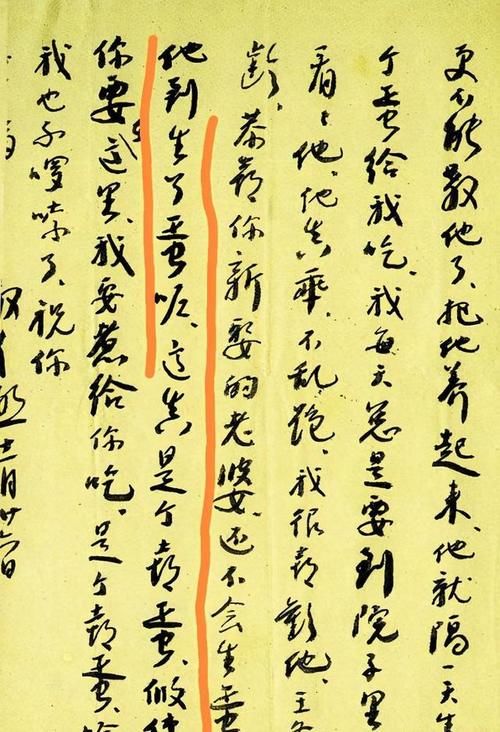 更不能殺他了、把他养起来、他就隔一天生
个蛋给我吃、我每天总是要到院子里
看〻他、他真乖、不乱跑、我很喜歡他、
歡、恭喜你新娶的老婆、还不会生蛋
他到生了蛋呢、这真是个喜蛋、
你要这里、我要煮给你吃、是个喜蛋、给
我也不啰嗦了、祝你
十一月廿六日